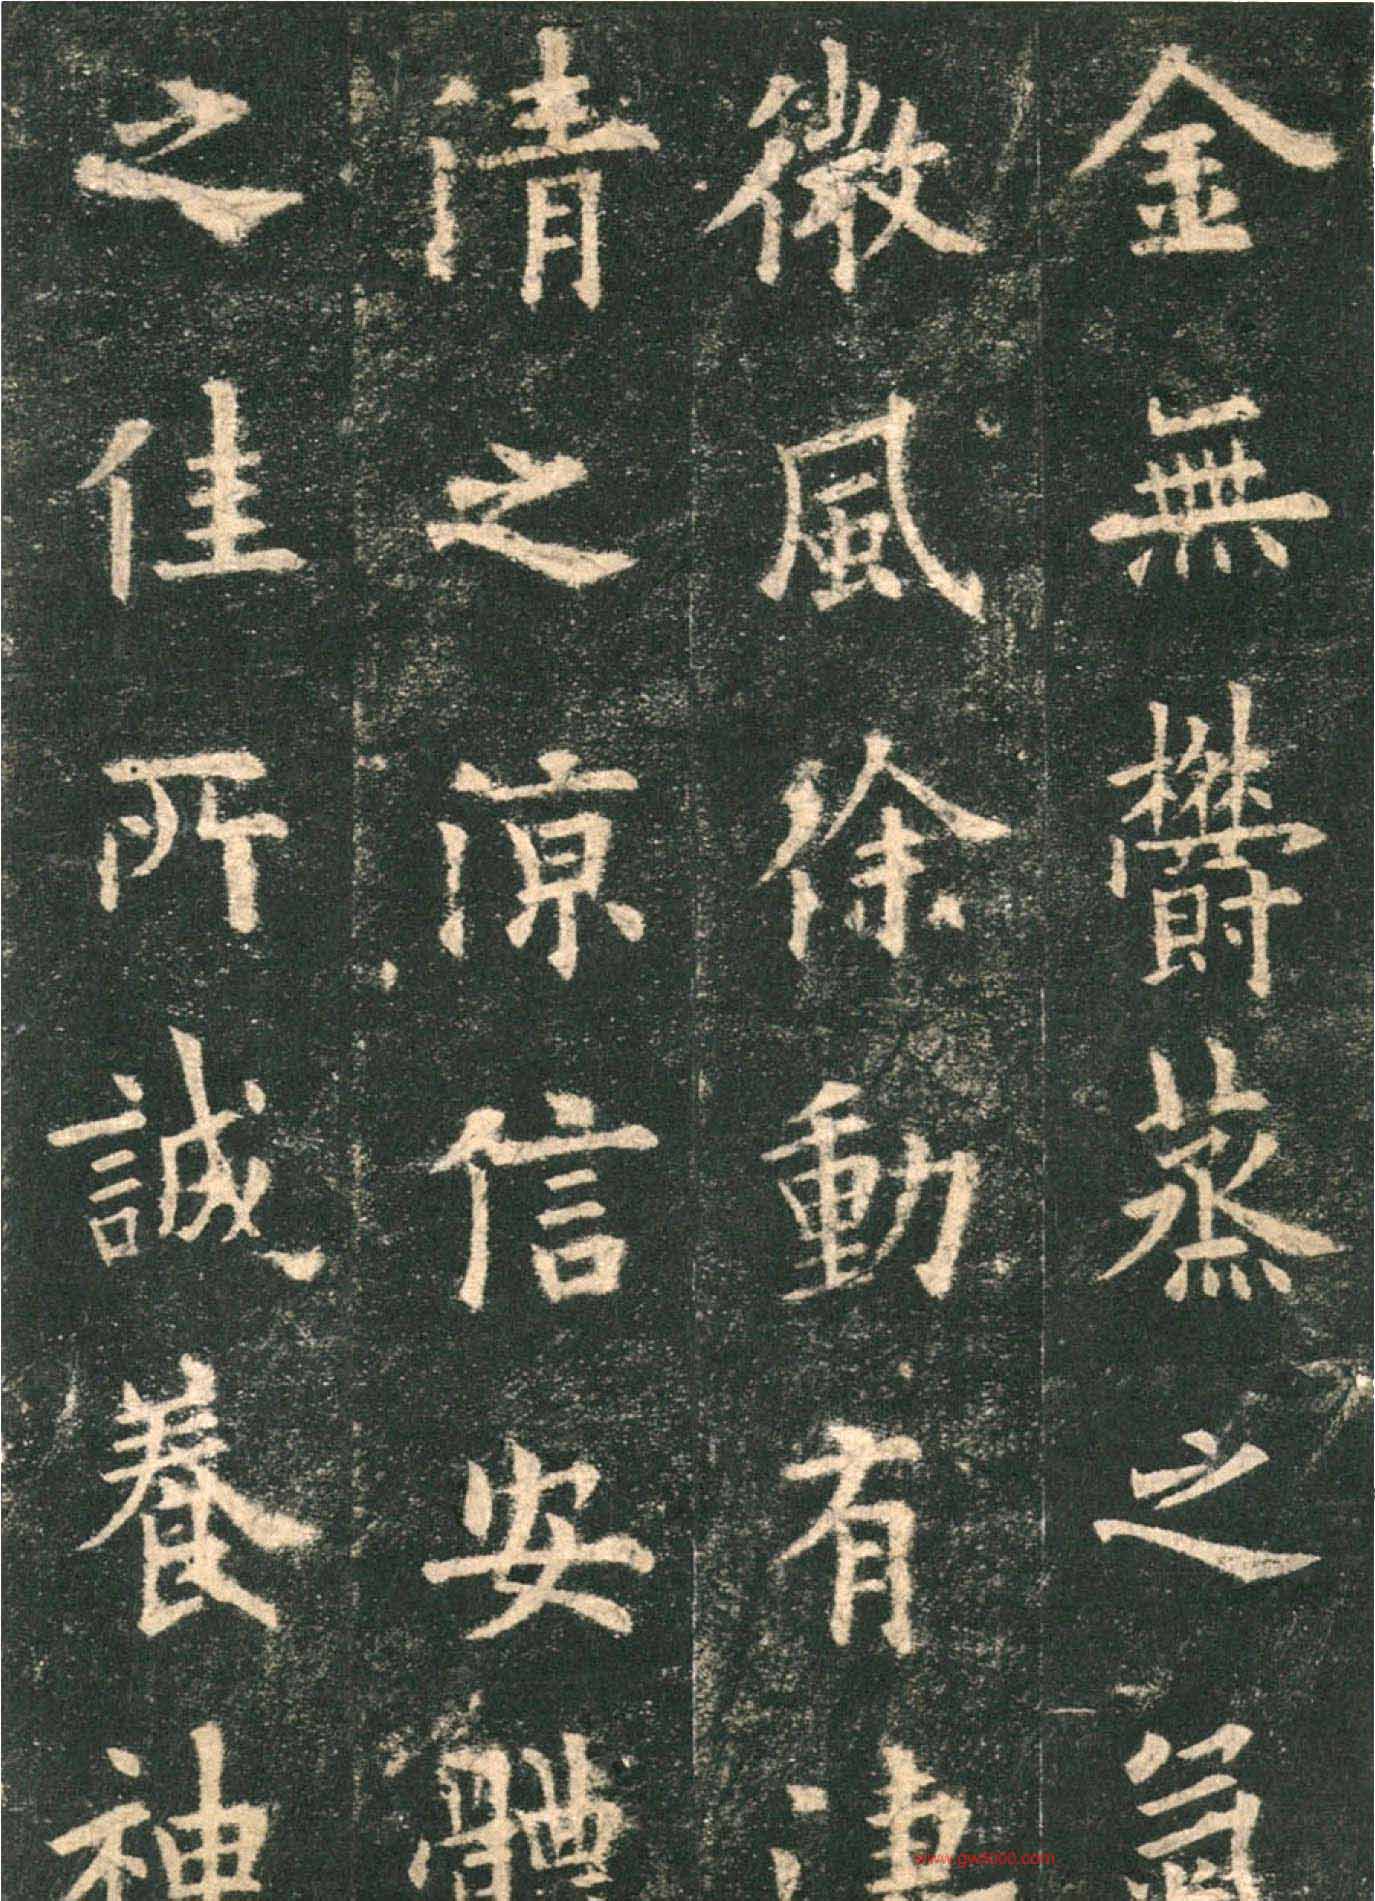 金無鬱蒸之氣
微風徐動有淒
清之涼信安體
之佳所誠養神
www.gw5000.com